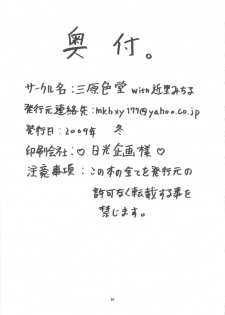 奥付。
サークル名:三原色堂 with 近里みちよ
発行元連絡先:mkhxy177@yahoo.co.jp
発行日:2009年 冬
印刷会社:♡日光企画様♡
注意事項:この本の全てを発行元の
許可なく転載する事を
禁じます。